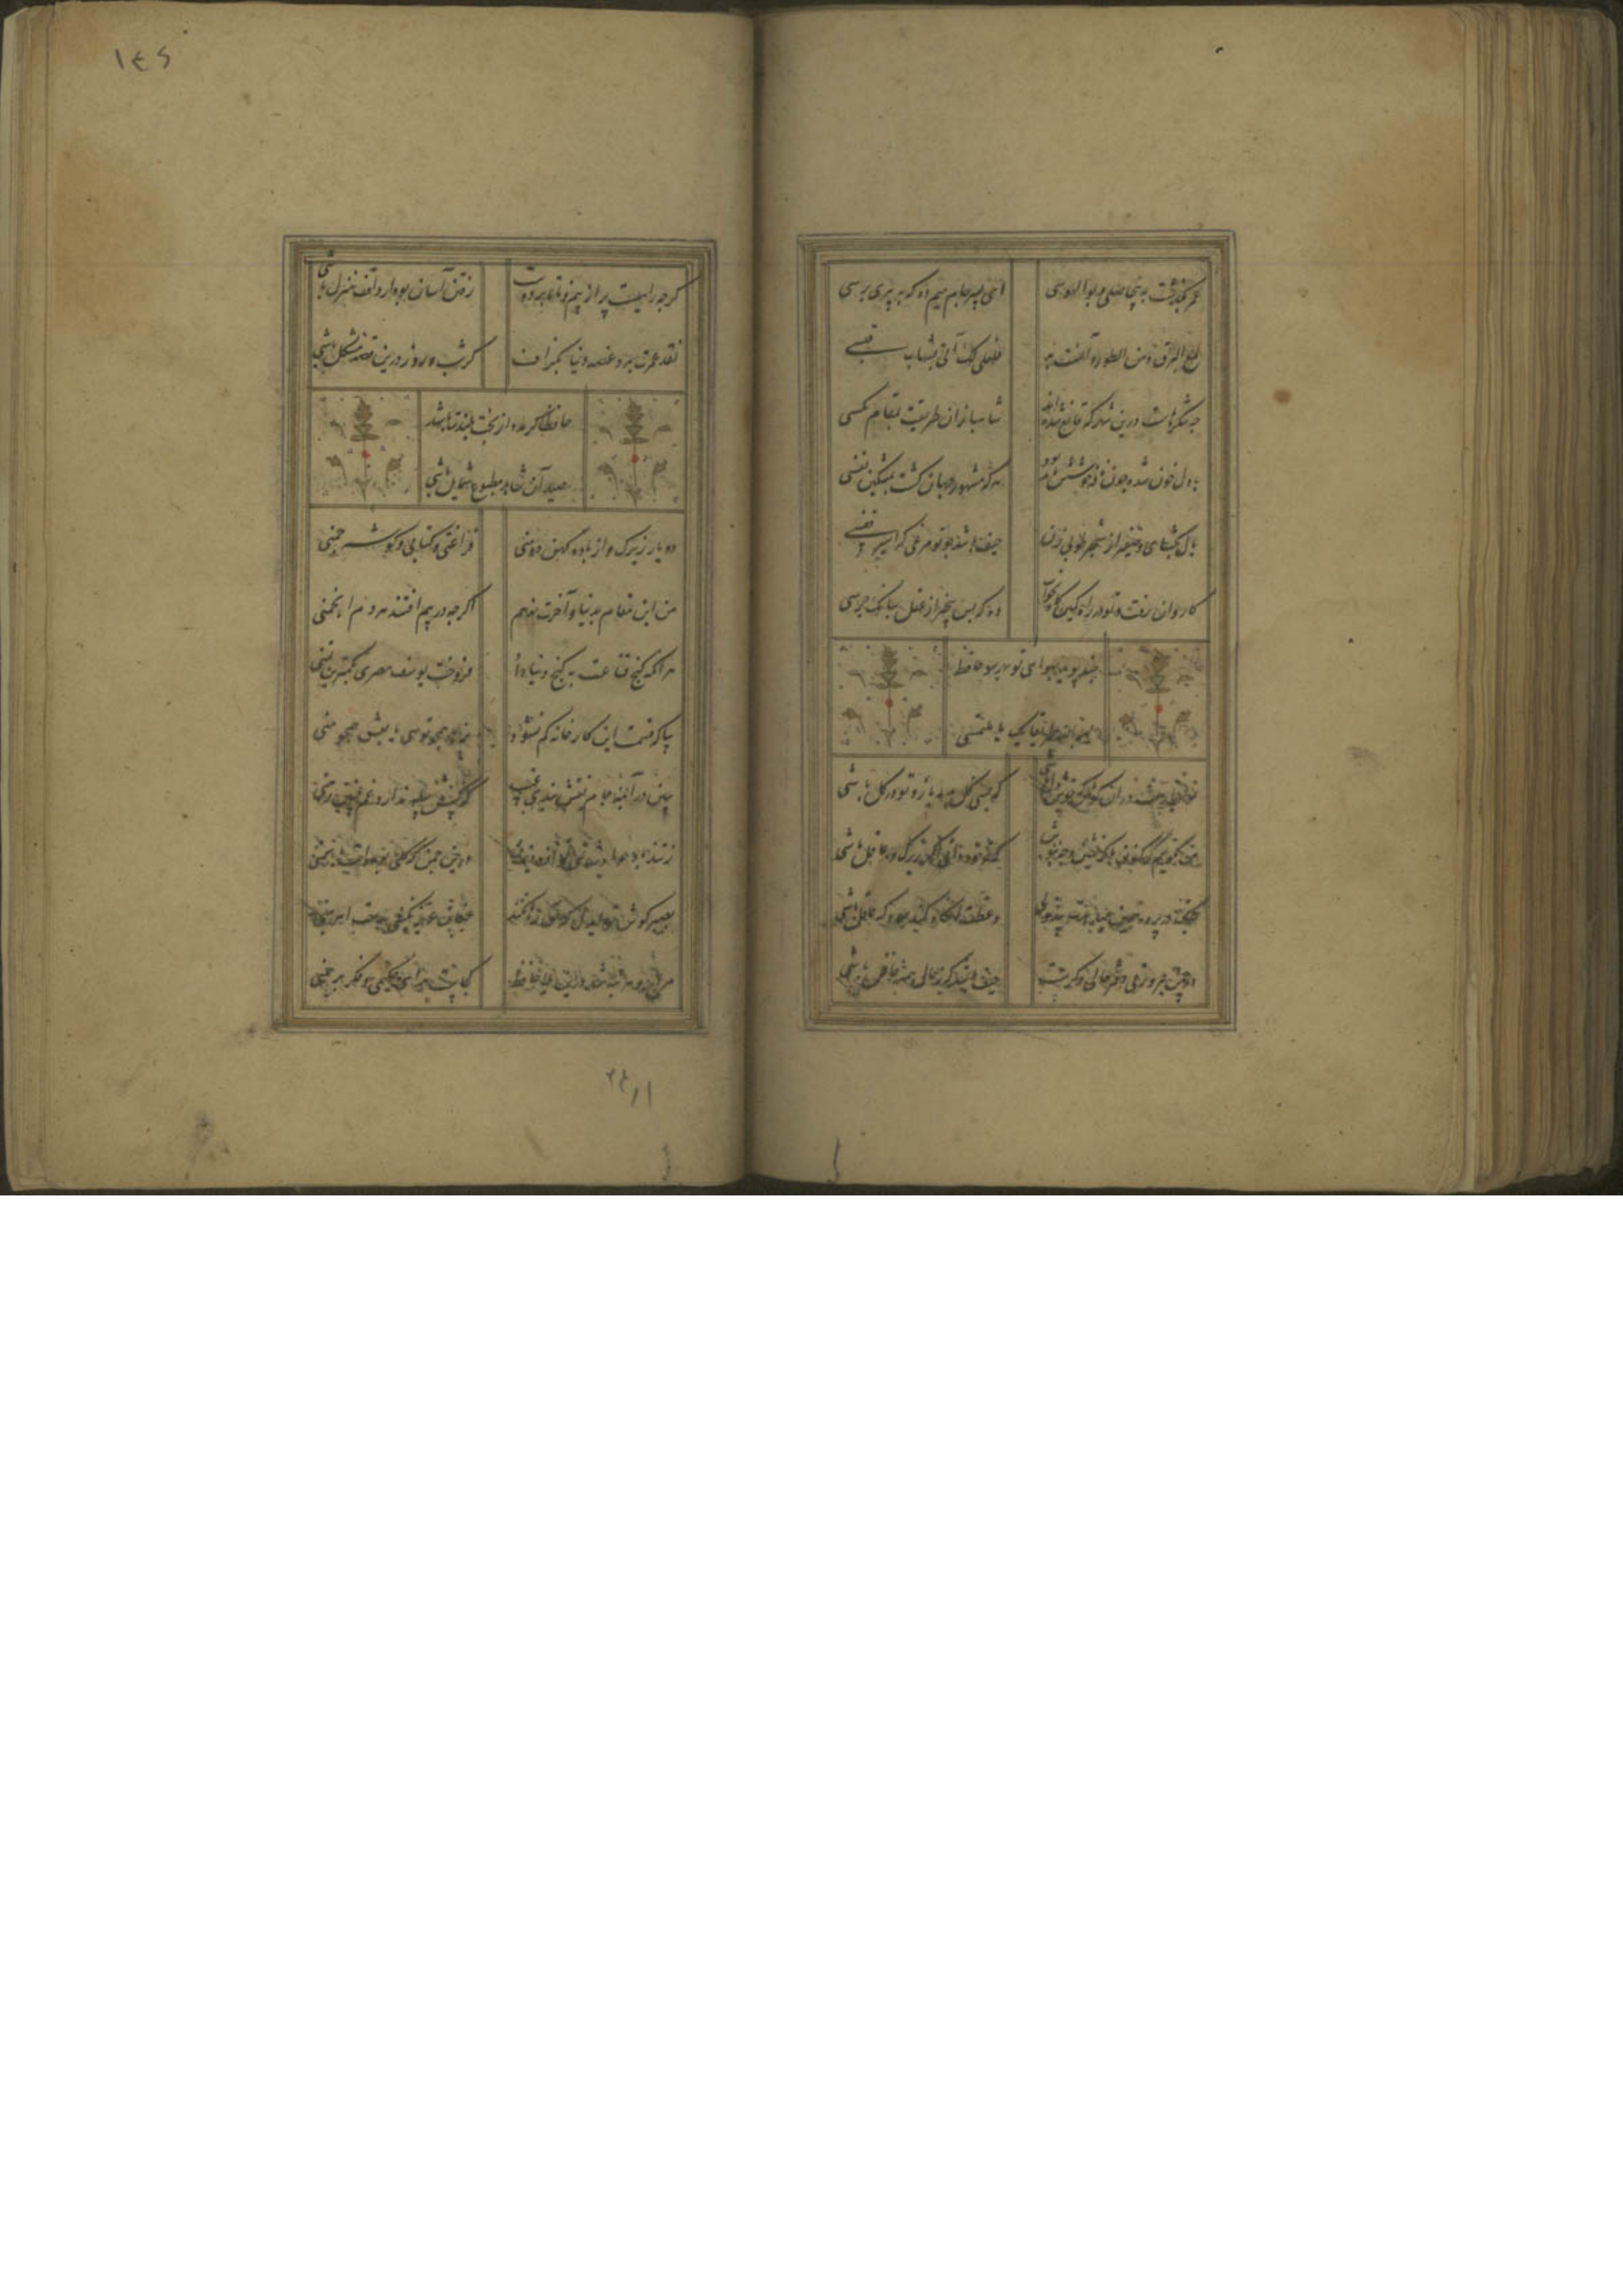 عمر بگذشت به بی حاصلی و بوالهوسی ای پسر جام میم ده که به پیری برسی
لمع البرق من الطور و آنست به فلعلی لک آتی بشهاب قبسی
چه شکرهاست درین شهر که قانع شده اند شاهبازان طریقت بمقام مکسی
با دل خون شده چون نافه خوشش باید بود هر که مشهور جهان کشت بمشکین نفسی
بال بکشای و صفیر از شجر طوبی زن حیف باشد چو تو مرغی که اسیر قفسی
کاروان رفت و تو در راه کمین کاه بخواب وه که بس بیخبر از غلغل بانک جرسی
چند پوید بهوای تو بهر سو حافظ
یسر الله طریقا بک یا ملتمسی
نوبهارست در آن کوش که خوشدل باشی که بسی کل بدمد باز و تو در کل باشی
من نکویم که کنون با که نشین و چه بنوش که تو خود دانی اکر زیرک و عاقل باشی
چنک در پرده همین میدهدت پند ولی وعظت آنکاه کند سود که قابل باشی
در چمن هر ورقی دفتر حالی دکرست حیف باشد که ز حال همه غافل باشی
کرچه راهیست پر از بیم ز ما تا بر دوست رفتن آسان بود ار واقف منزل باشی
نقد عمرت ببرد غصه دنیا بکزاف کر شب و روز درین قصه مشکل باشی
حافظا کر مدد از بخت بلندت باشد
صید آن شاهد مطبوع شمایل باشی
دو یار زیرک و از باده کهن دو منی فراغتی و کتابی و کوشه چمنی
من این مقام بدنیا و آخرت ندهم اکرچه در پیم افتند هر دم انجمنی
هر آنکه کنج قناعت به کنج دنیا داد فروخت یوسف مصری بکمترین ثمنی
بیا که قسمت این کارخانه کم نشود بزهد همچو تویی یا بفسق همچو منی
ببین در آینه جام نقش بندی غیب که کس
ز تندباد حوادث نمی توان دیدن درین چمن که کلی بوده است یا سمنی
بصبر کوش تو ای دل که حق رها نکند چنین عزیز نکینی بدست اهرمنی
مزاج دهر تبه شد درین بلا حافظ کجاست رای حکیمی و فکر برهمنی